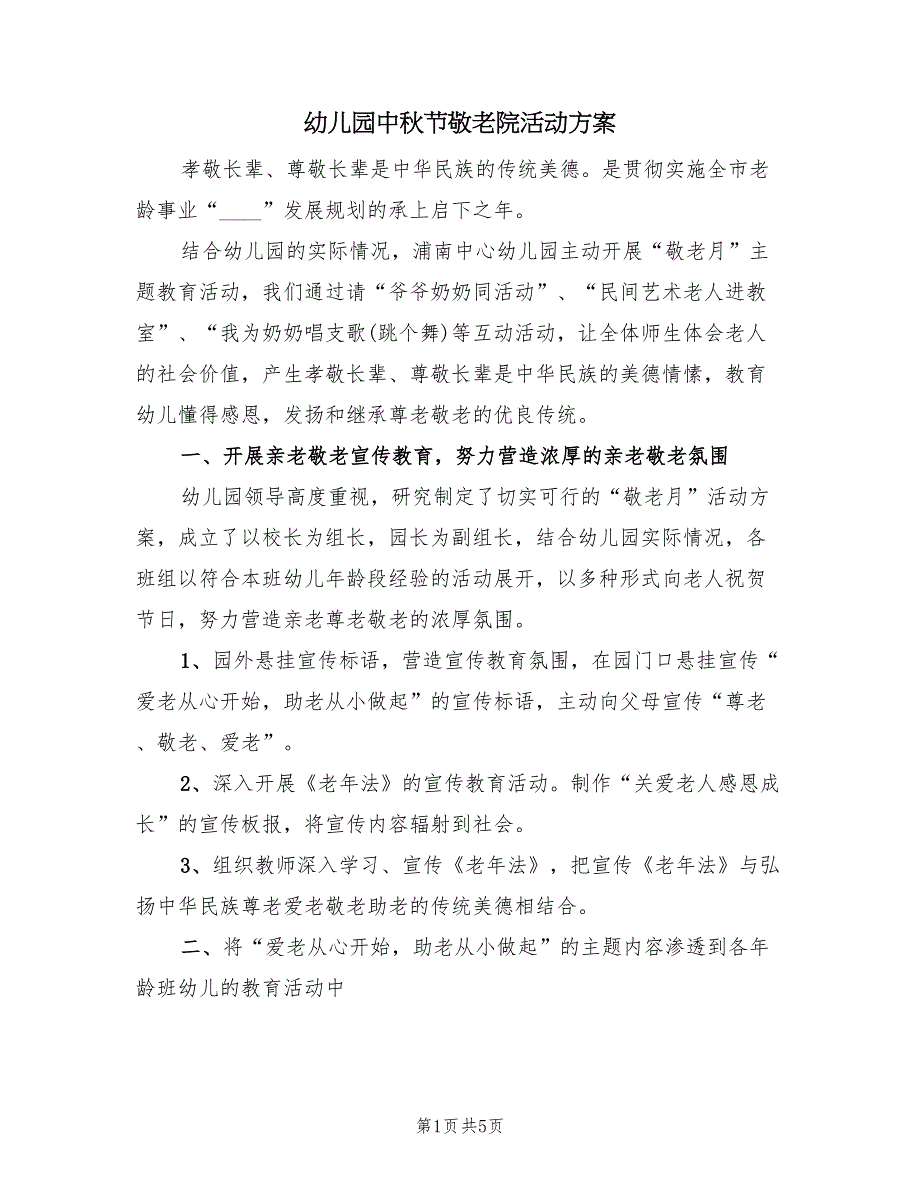 幼儿园中秋节敬老院活动方案
孝敬长辈、尊敬长辈是中华民族的传统美德。是贯彻实施全市老
龄事业“____”发展规划的承上启下之年。
结合幼儿园的实际情况，浦南中心幼儿园主动开展“敬老月”主
题教育活动，我们通过请“爷爷奶奶同活动”、“民间艺术老人进教
室”、“我为奶奶唱支歌(跳个舞)等互动活动，让全体师生体会老人
的社会价值，产生孝敬长辈、尊敬长辈是中华民族的美德情愫，教育
幼儿懂得感恩，发扬和继承尊老敬老的优良传统。
一、开展亲老敬老宣传教育，努力营造浓厚的亲老敬老氛围
幼儿园领导高度重视，研究制定了切实可行的“敬老月”活动方
案，成立了以校长为组长，园长为副组长，结合幼儿园实际情况，各
班组以符合本班幼儿年龄段经验的活动展开，以多种形式向老人祝贺
节日，努力营造亲老尊老敬老的浓厚氛围。
1、园外悬挂宣传标语，营造宣传教育氛围，在园门口悬挂宣传“
爱老从心开始，助老从小做起”的宣传标语，主动向父母宣传“尊老
、敬老、爱老”。
2、深入开展《老年法》的宣传教育活动。制作“关爱老人感恩成
长”的宣传板报，将宣传内容辐射到社会。
3、组织教师深入学习、宣传《老年法》，把宣传《老年法》与弘
扬中华民族尊老爱老敬老助老的传统美德相结合。
二、将“爱老从心开始，助老从小做起”的主题内容渗透到各年
龄班幼儿的教育活动中
第1页 共5页